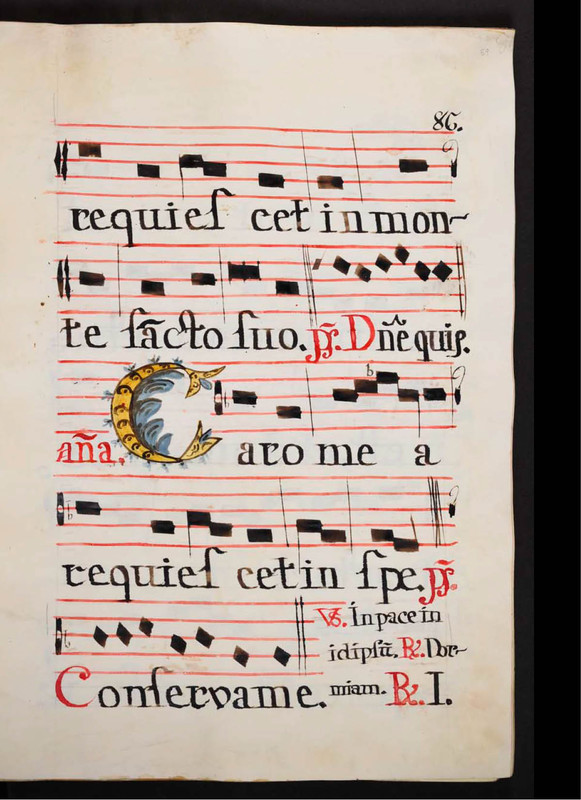 86.
requieſ cet in mon~
te ſãcto ſuo. pſ. Dñe quis.
aña. Caro me a
requieſ cet in ſpe. pſ.
℣. Ín pace in
idipſũ. ℟. Dor~
Conſervame. miam. ℟. I.